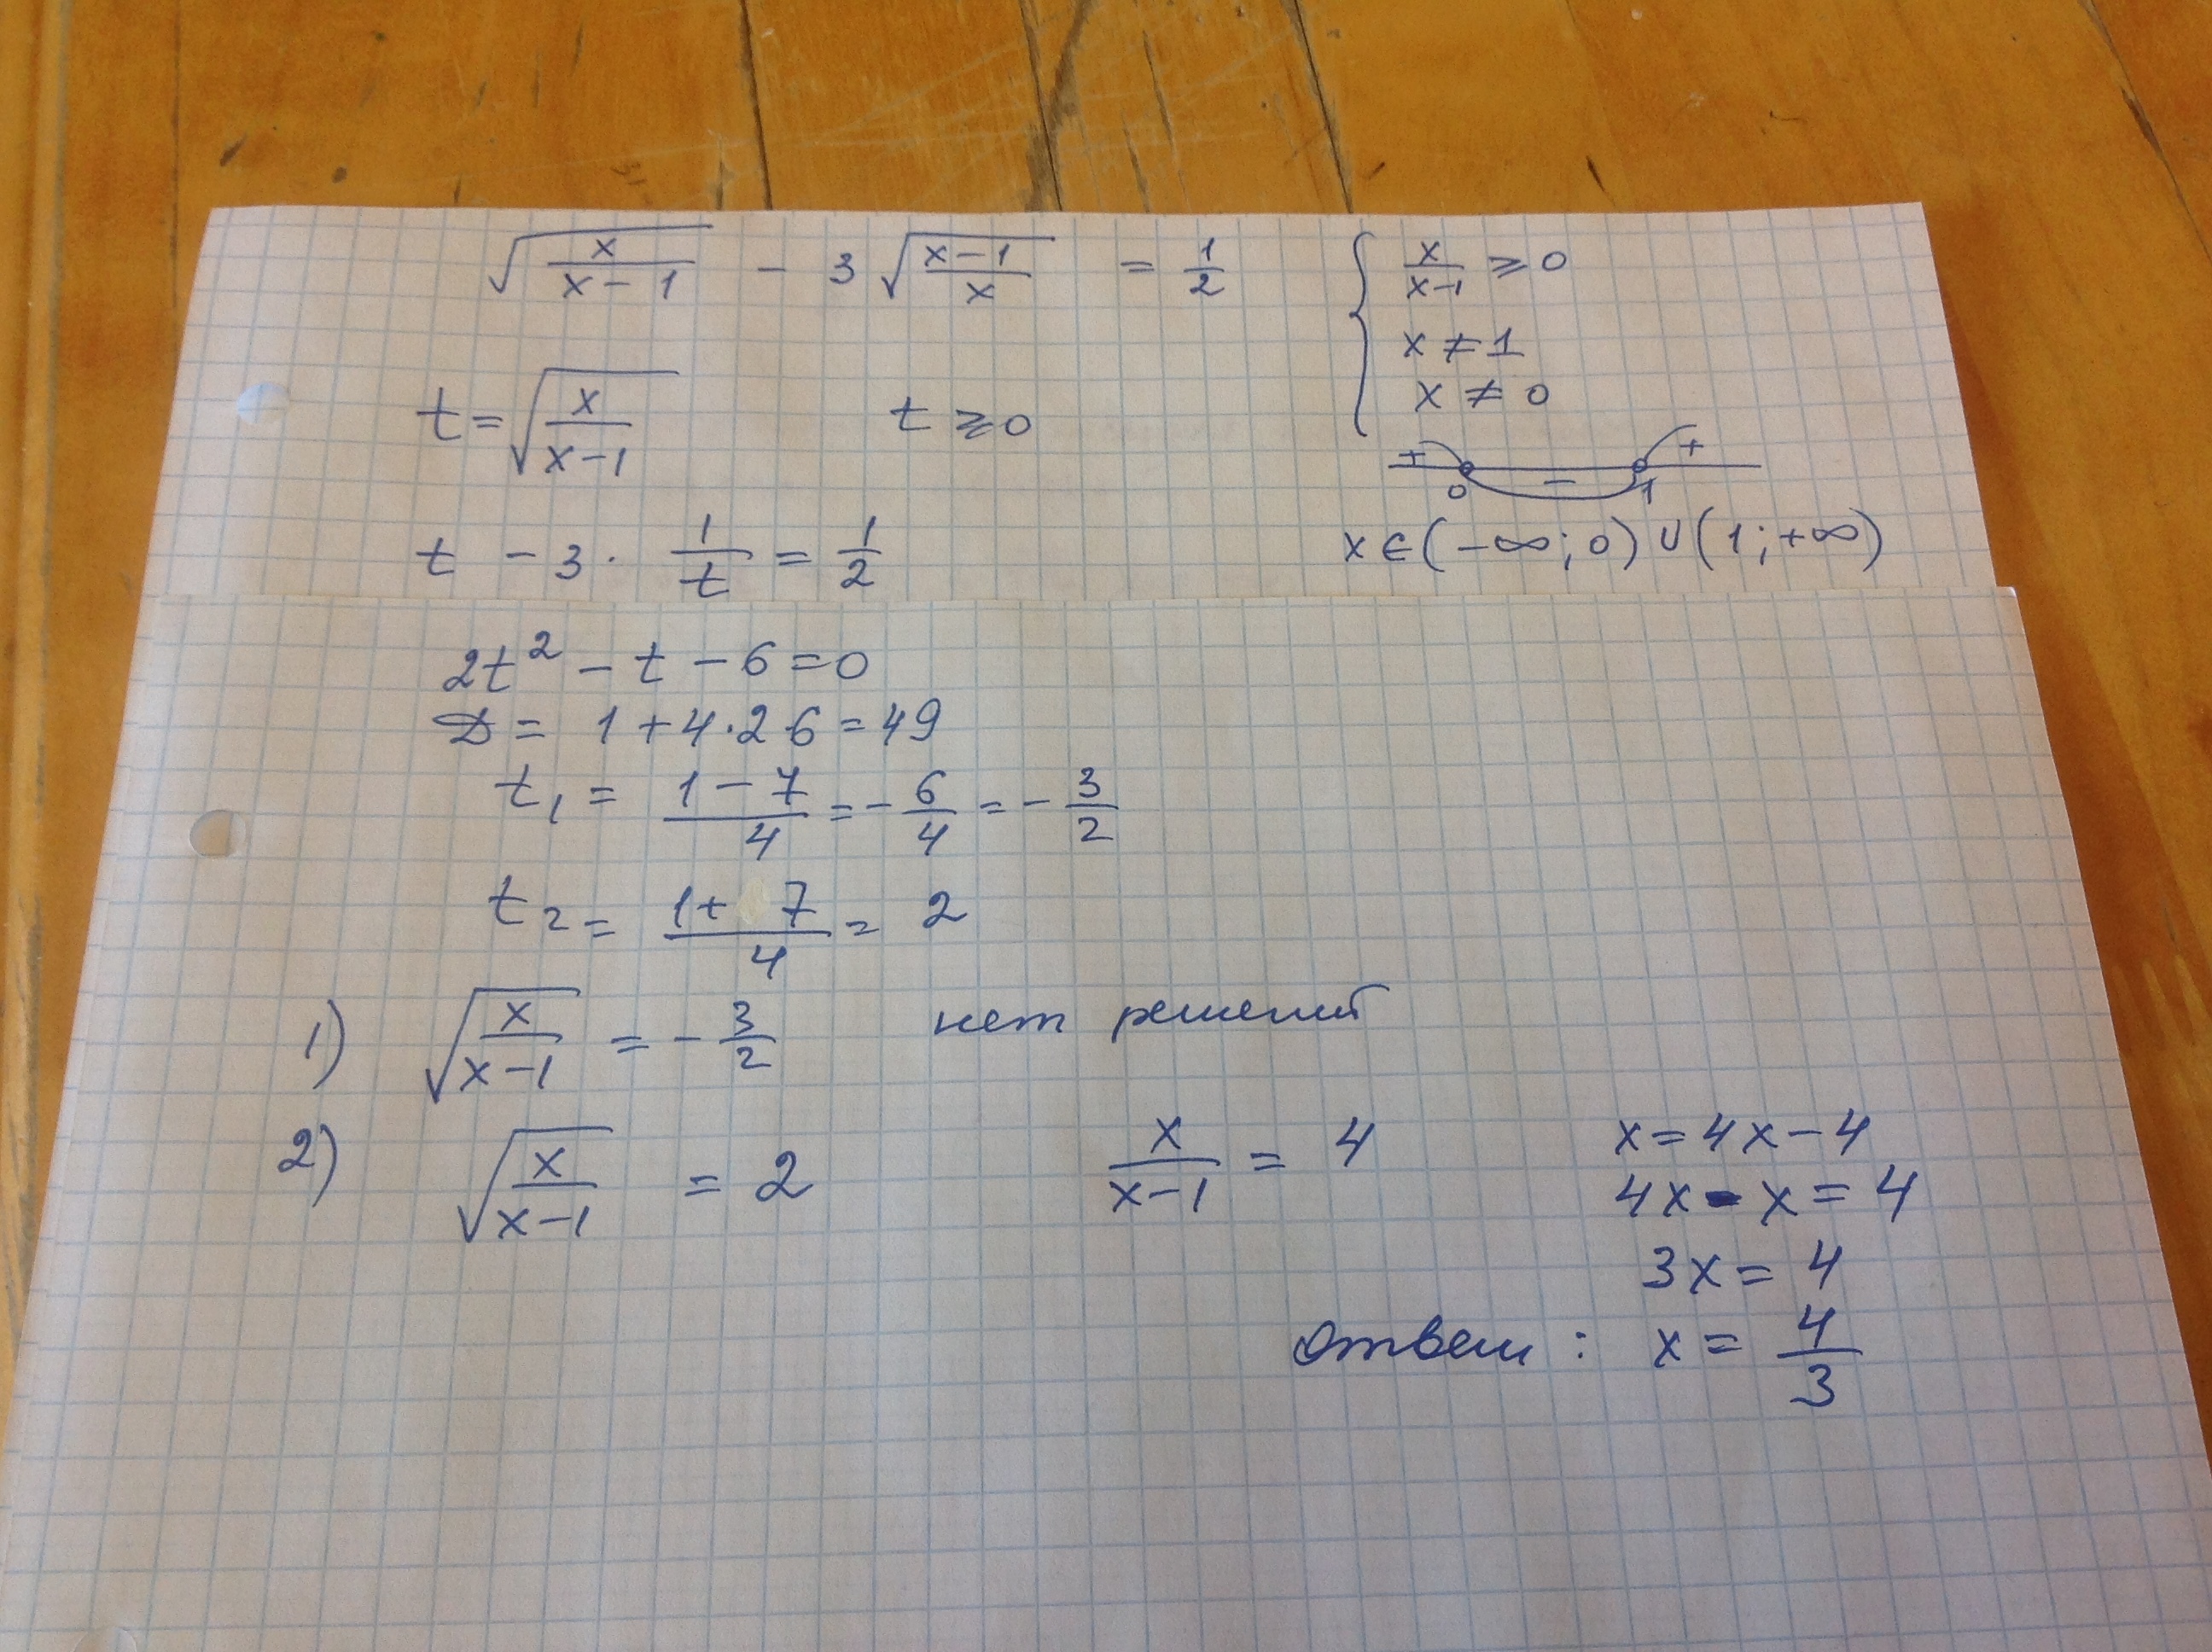 √(x/(x-1)) - 3√((x-1)/x) = 1/2
{ x/(x-1) ⩾ 0
x ≠ 1
x ≠ 0
t = √(x/(x-1)) t ⩾ 0
+ 0 - 1 +
x ∈ (-∞; 0) ∪ (1; +∞)
t - 3 · 1/t = 1/2
2t² - t - 6 = 0
D = 1 + 4·26 = 49
t₁ = (1-7)/4 = -6/4 = -3/2
t₂ = (1+7)/4 = 2
1) √(x/(x-1)) = -3/2 нет решений
2) √(x/(x-1)) = 2 x/(x-1) = 4 x = 4x - 4
4x - x = 4
3x = 4
Ответ: x = 4/3